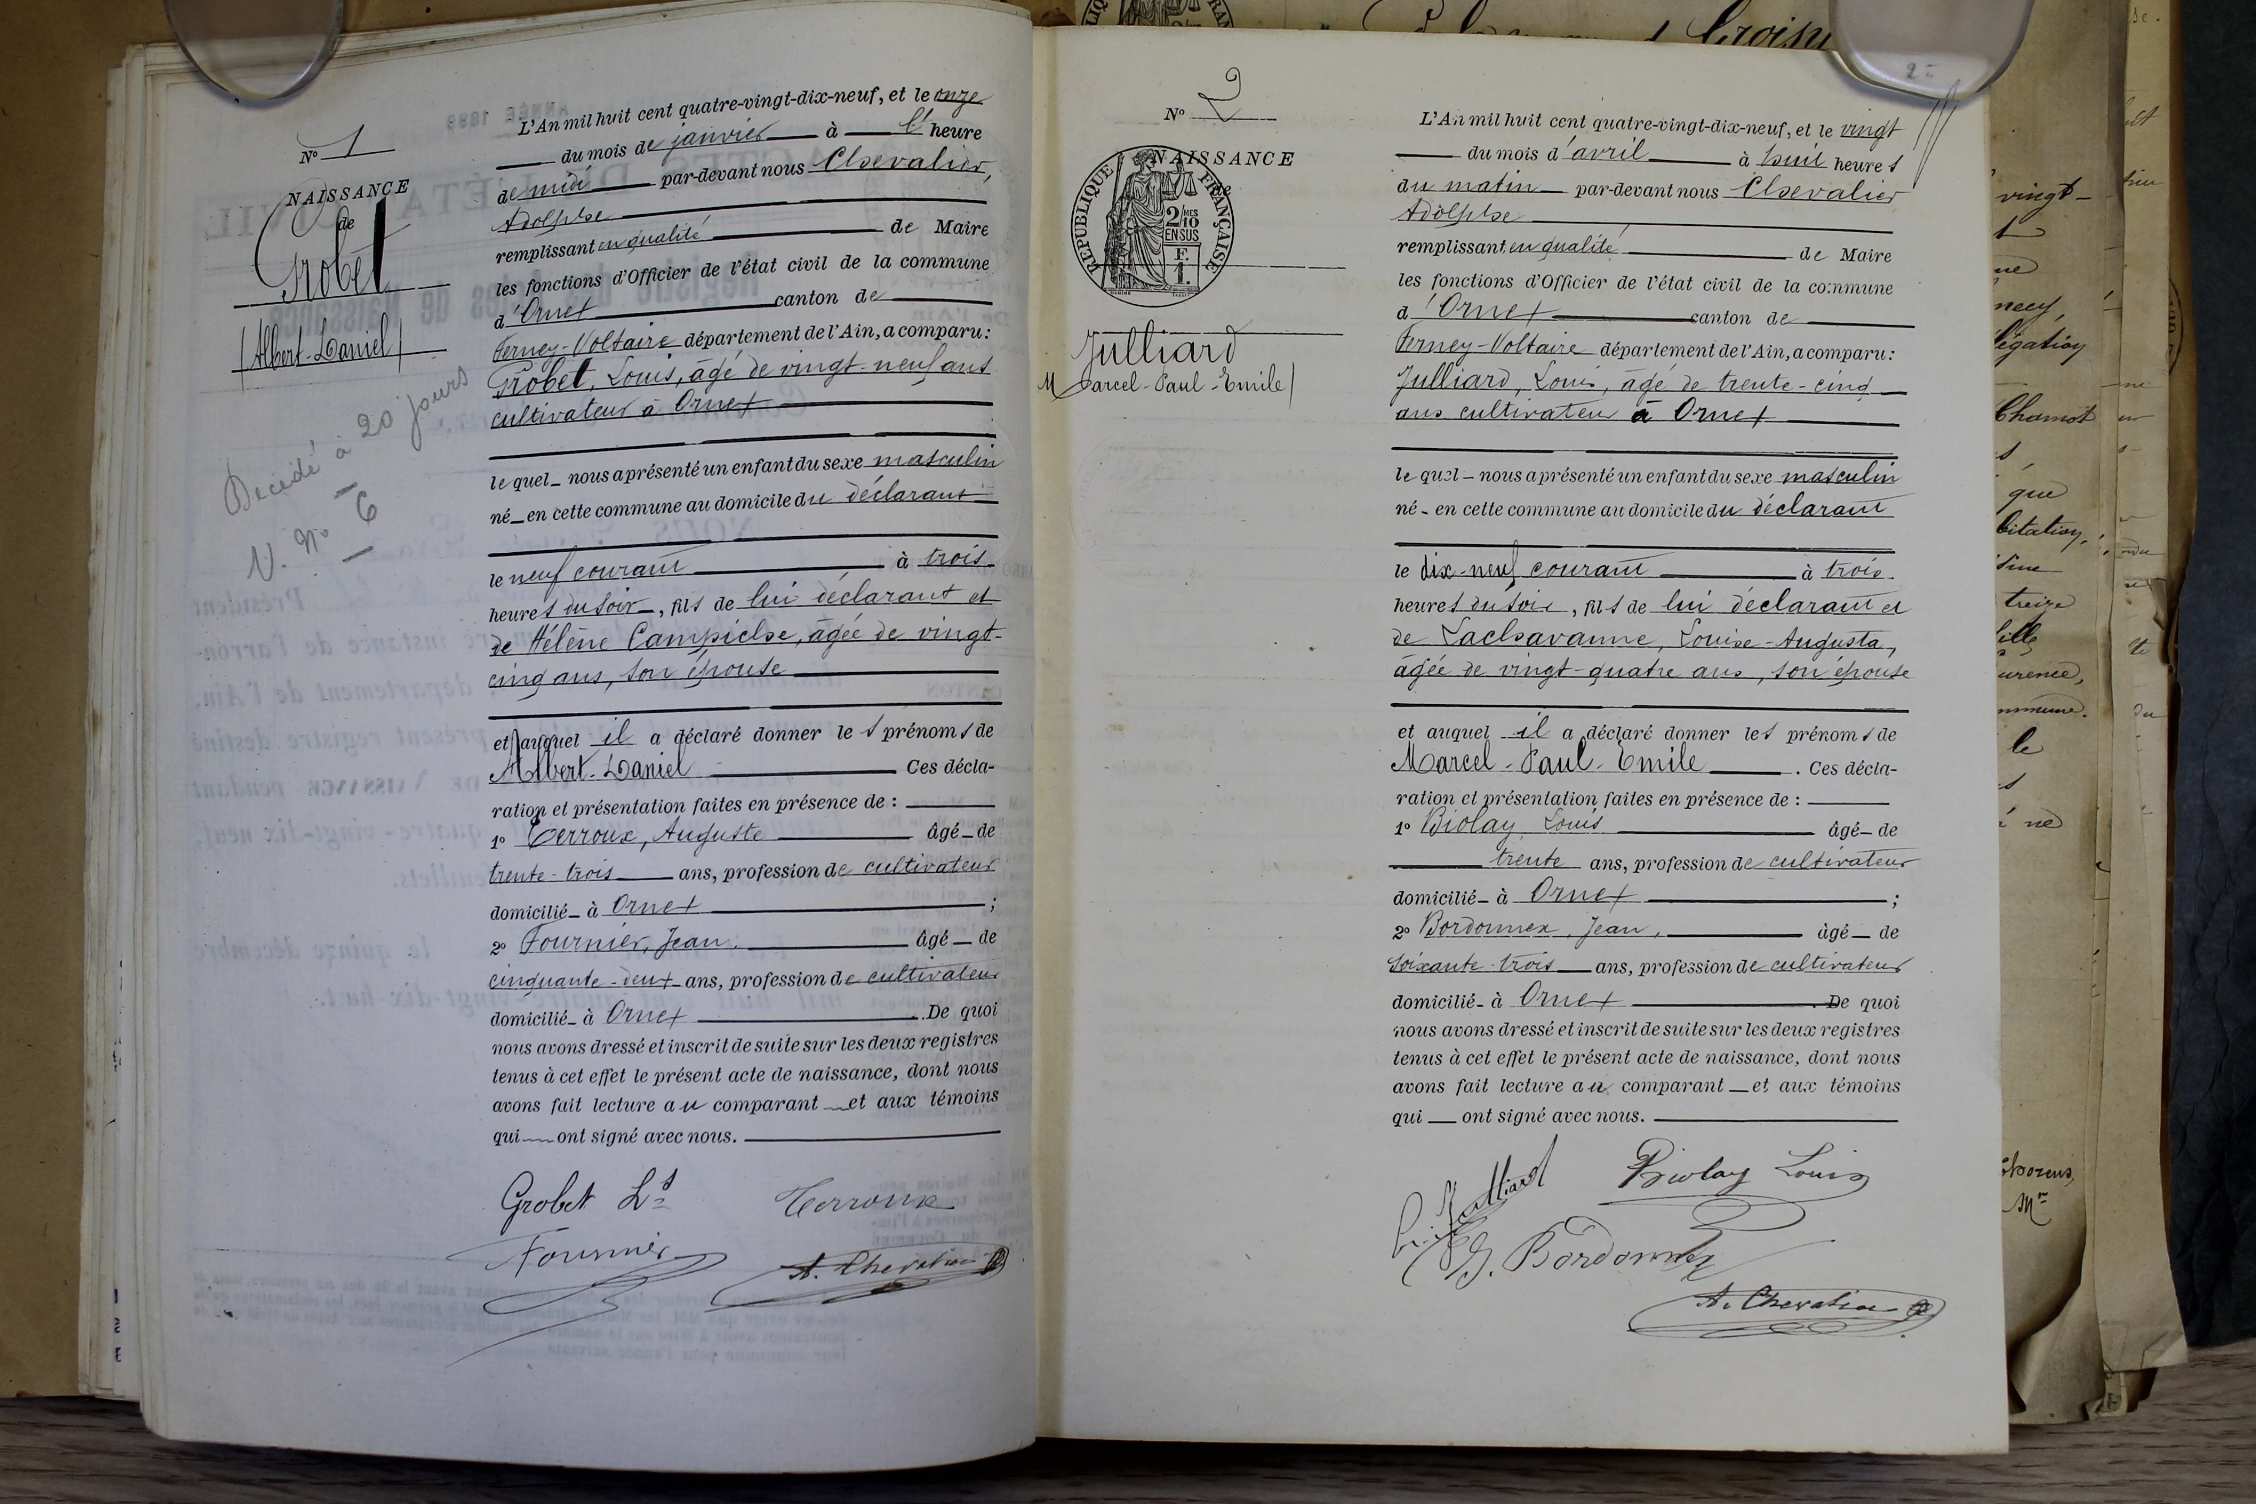 N° 1
NAISSANCE
de
Grobet
(Albert-Daniel)
Décédé à 20 jours
V. N° 6
L'An mil huit cent quatre-vingt-dix-neuf, et le onze
du mois de janvier à l' heure
de midi par-devant nous Chevalier,
Adolphe
remplissant en qualité de Maire
les fonctions d'Officier de l'état civil de la commune
d'Ornex canton de
Ferney-Voltaire département de l'Ain, a comparu :
Grobet, Louis, âgé de vingt-neuf ans
cultivateur à Ornex
lequel nous a présenté un enfant du sexe masculin
né en cette commune au domicile du déclarant
le neuf courant à trois
heures du soir, fils de lui déclarant et
de Hélène Campiche, âgée de vingt-
cinq ans, son épouse
et auquel il a déclaré donner les prénoms de
Albert-Daniel Ces décla-
ration et présentation faites en présence de :
1° Terroux, Auguste âgé de
trente-trois ans, profession de cultivateur
domicilié à Ornex ;
2° Fournier, Jean, âgé de
cinquante-deux ans, profession de cultivateur
domicilié à Ornex . De quoi
nous avons dressé et inscrit de suite sur les deux registres
tenus à cet effet le présent acte de naissance, dont nous
avons fait lecture au comparant et aux témoins
qui ont signé avec nous.
Grobet Ls Terroux
Fournier A. Chevalier
2
N° 2
NAISSANCE
RÉPUBLIQUE FRANÇAISE
2/10 MES
EN SUS
F.
1.
Julliard
Marcel-Paul-Emile)
L'An mil huit cent quatre-vingt-dix-neuf, et le vingt
du mois d'avril à huit heures
du matin par-devant nous Chevalier
Adolphe
remplissant en qualité de Maire
les fonctions d'Officier de l'état civil de la commune
d'Ornex canton de
Ferney-Voltaire département de l'Ain, a comparu :
Julliard, Louis, âgé de trente-cinq
ans cultivateur à Ornex
lequel nous a présenté un enfant du sexe masculin
né en cette commune au domicile du déclarant
le dix-neuf courant à trois
heures du soir, fils de lui déclarant et
de Lachavanne, Louise-Augusta,
âgée de vingt-quatre ans, son épouse
et auquel il a déclaré donner les prénoms de
Marcel-Paul-Emile . Ces décla-
ration et présentation faites en présence de :
1° Biolay, Louis âgé de
trente ans, profession de cultivateur
domicilié à Ornex ;
2° Bordonnex, Jean, âgé de
soixante-trois ans, profession de cultivateur
domicilié à Ornex . De quoi
nous avons dressé et inscrit de suite sur les deux registres
tenus à cet effet le présent acte de naissance, dont nous
avons fait lecture au comparant et aux témoins
qui ont signé avec nous.
Julliard Biolay Louis
J. Bordonnex
A. Chevalier